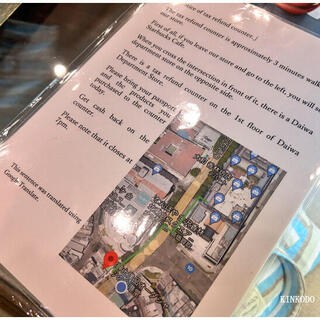 ce of tax refund counter.
The tax refund counter is approximately 3 minutes walk
our store.
First of all, if you leave our store and go to the left, you will s
Starbucks Cafe.
When you cross the intersection in front of it, there is a Daiwa
department store on the opposite side.
There is a tax refund counter on the 1st floor of Daiwa
Department Store.
Please bring your passport
and the products you
purchased to the counter
today.
Get cash back on the
counter.
Please note that it closes at
7pm.
This sentence was translated using
Google Translate.
KINKODO